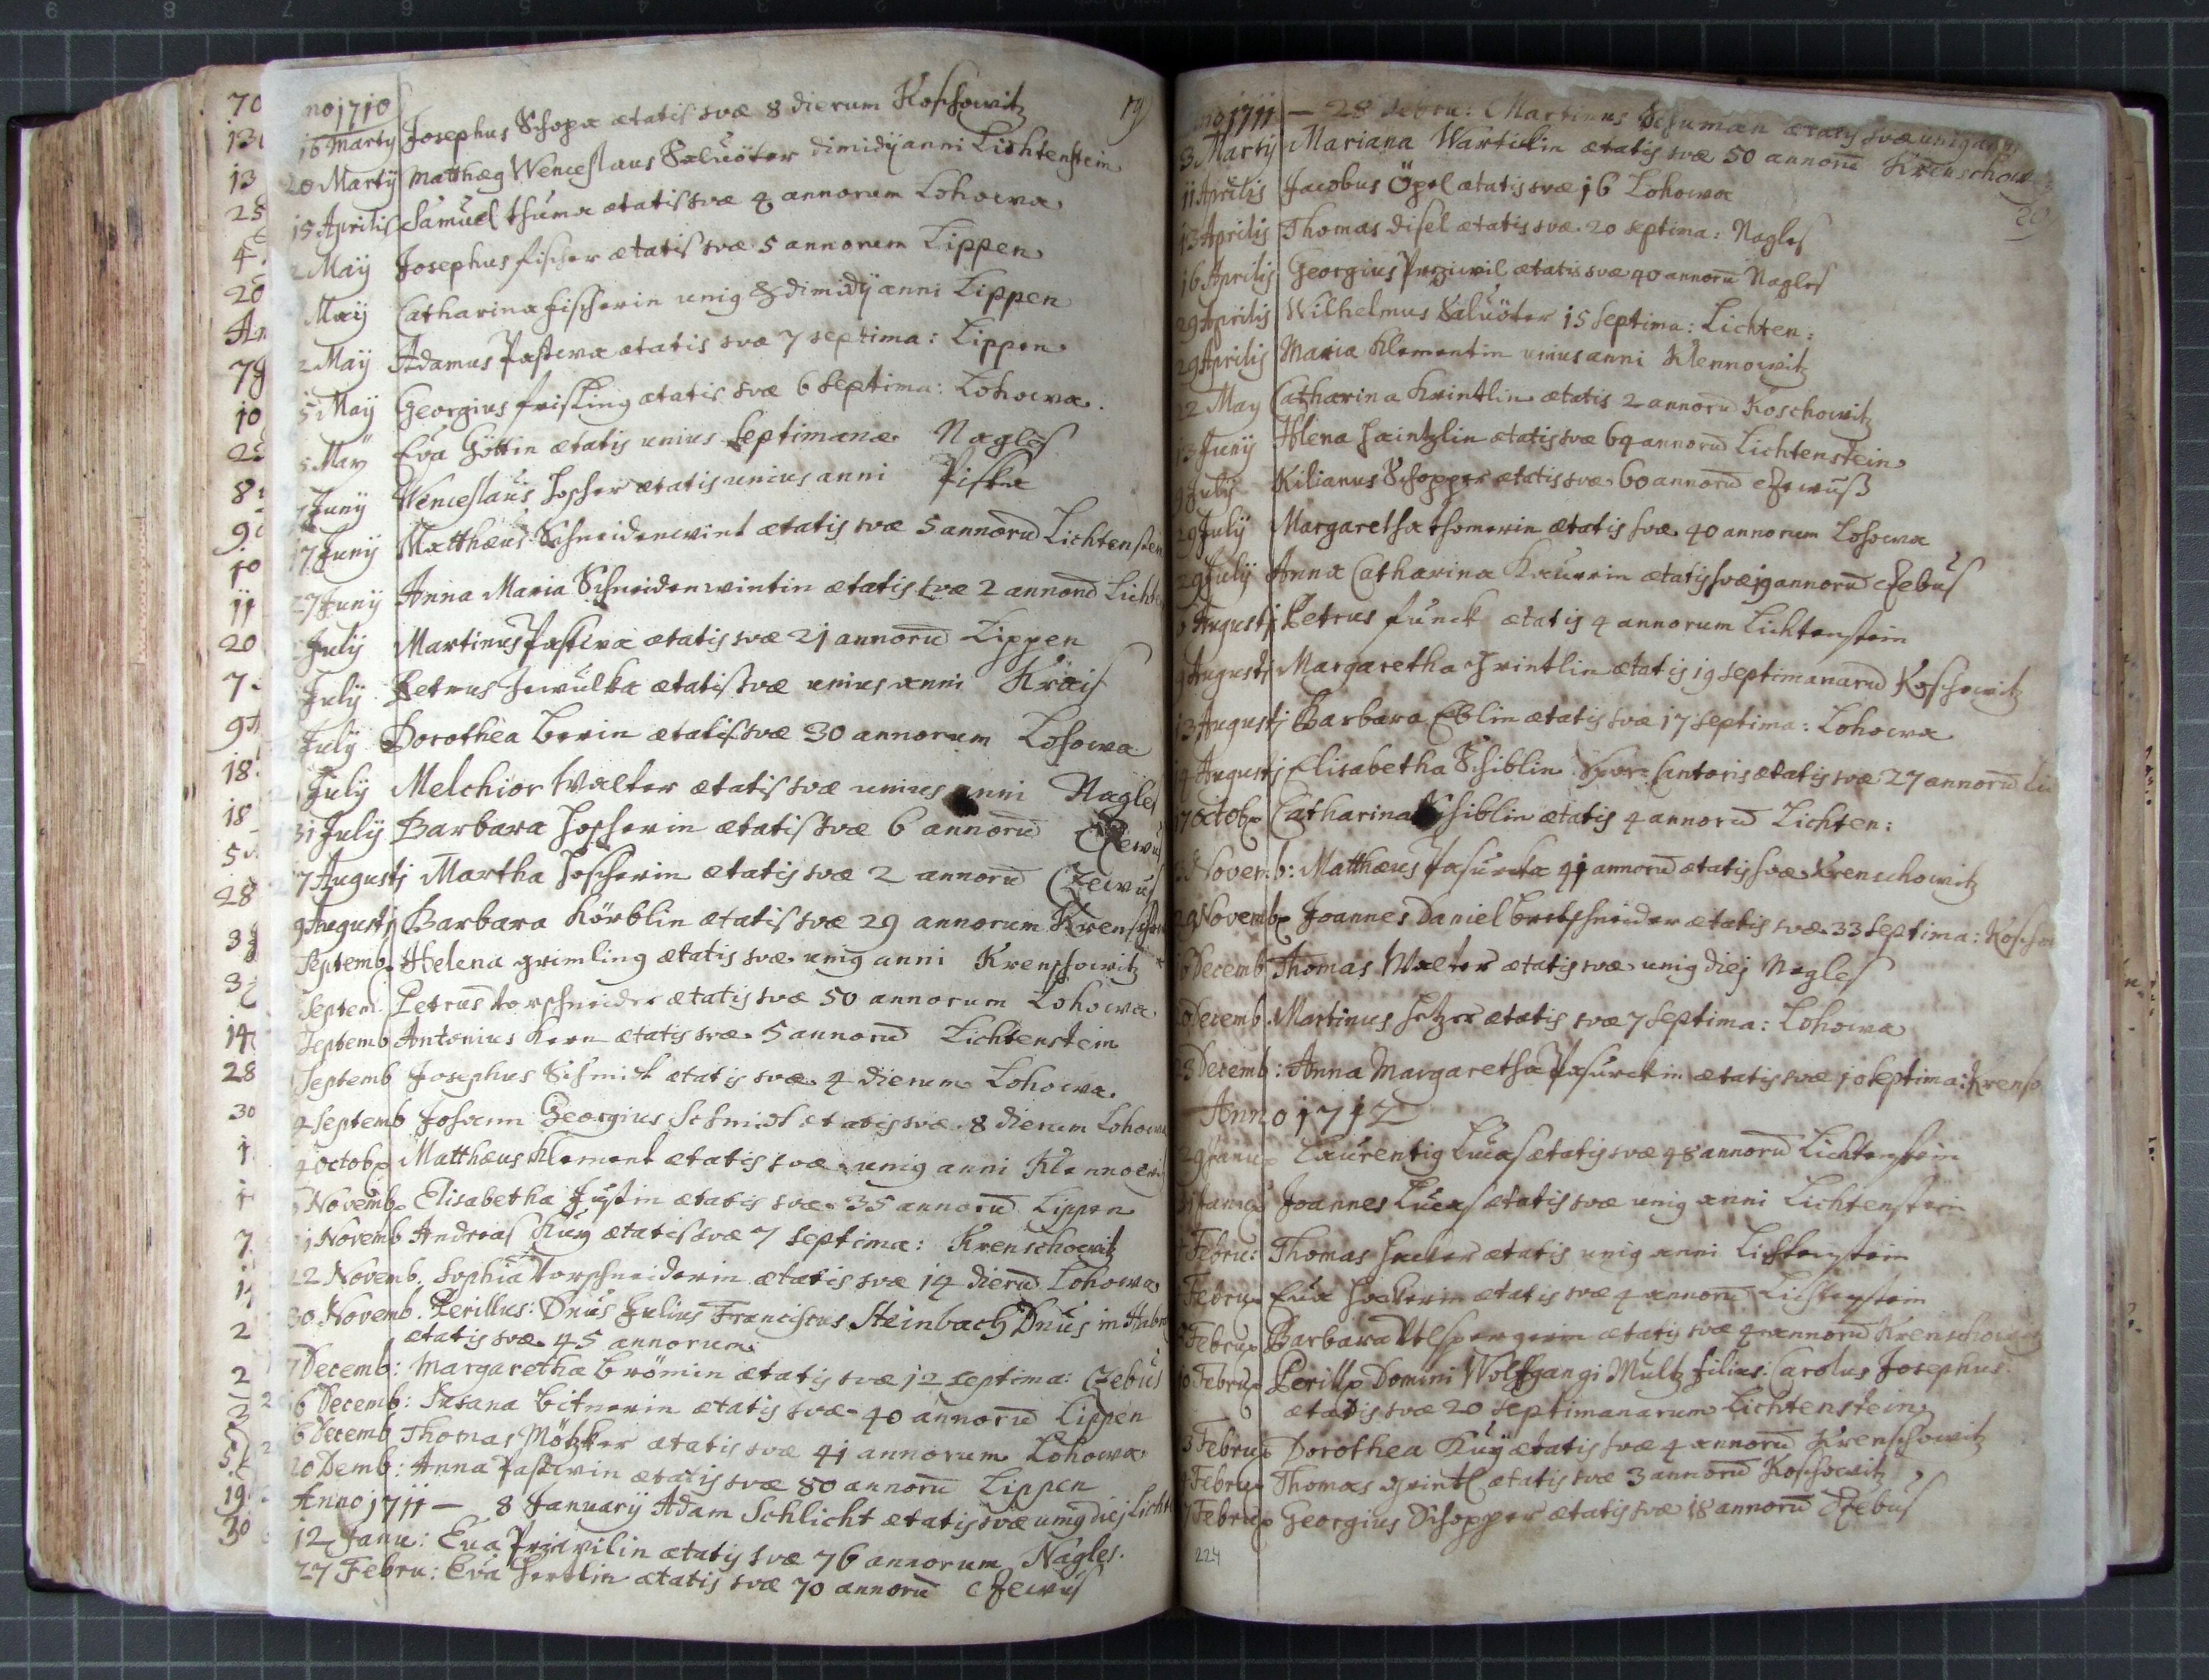 no 1710
19
16 Martij Josephus Schopa ætatis svæ 8 dierum Koschowitz
20 Martij Matthæg Wenceslaus Saluöter dimidij anni Lichtenstein
15 Aprilis Samuel thuma ætatis svæ 4 annorum Lohowa
2 Maij Josephus fischer ætatis svæ 5 annorum Lippen
Maij Catharina fischerin unig & dimidij anni Lippen
2 Maij Adamus Pastwa ætatis svæ 7 septima: Lippen
5 Maij Georgius frisking ætatis svæ 6 Septima: Lohowa
5 May Eva Göttin ætatis unius Septimanæ Nagles
7 Junij Wenceslaus Hoscher ætatis unius anni Piska
17 Junij Matthæus Schneidenwint ætatis svæ 5 annorū Lichtenstein
27 Junij Anna Maria Schneidenwintin ætatis svæ 2 annorū Lichte
July Martinus Pastwa ætatis svæ 21 annorū Lippen
July Petrus Jewulka ætatis svæ unius anni Kräis
July Dorothea berin ætatis svæ 30 annorum Lohowa
July Melchior Walter ætatis svæ unius anni Nagles
31 July Barbara Hoscherin ætatis svæ 6 annorū Czewus
7 Augustj Martha Hoscherin ætatis svæ 2 annorū Czewus
9 Augustj Barbara Körblin ætatis svæ 29 annorum Krenscho
Septemb. Helena grimling ætatis svæ unig anni Krenschowitz
Septem. Petrus torschneider ætatis svæ 50 annorum Lohowa
Septemb Antonius Kern ætatis svæ 5 annorū Lichtenstein
Septemb Josephus Schmidt ætatis svæ 4 dierum Lohowa
4 Septemb Johann Georgius Schmidt ætatis svæ 8 dierum Lohowa
4 Octob Matthæus Klement ætatis svæ unig anni Klennowi
Novemb Elisabetha Justin ætatis svæ 35 annorū Lippen
21 Novemb Andreas Kuy ætatis svæ 7 septima: Krenschowitz
22 Novemb. Sophia torschneiderin ætatis svæ 14 dierū Lohowa
30 Novemb. Perillus: Dnus Julius Franciscus Steinbach Dnus in
ætatis svæ 45 annorum
7 Decemb: Margaretha brömin ætatis svæ 12 septima: Czebus
6 Decemb: Susana bitnerin ætatis svæ 40 annorū Lippen
6 Decemb Thomas Mötzker ætatis svæ 41 annorum Lohowa
20 Demb: Anna Pastwin ætatis svæ 80 annorū Lippen
Anno 1711 — 8 Januarij Adam Schlicht ætatis svæ unig diej Licht
12 Janu: Eua Prziwilin ætatis svæ 76 annorum Nagles.
27 Febru: Eva Hertlin ætatis svæ 70 annorū Czewus
no 1711 — 28 Febru: Martinus Schuman ætatis svæ unig anni
20
3 Martij Mariana Wartichin ætatis svæ 50 annorū Krenschow
11 Aprilis Jacobus Öpel ætatis svæ 16 Lohowa
13 Aprilis Thomas disel ætatis svæ 20 septima: Nagles
16 Aprilis Georgius Prziwil ætatis svæ 40 annorū Nagles
29 Aprilis Wilhelmus Saluöter 15 Septima: Lichten:
29 Aprilis Maria Klementin unius anni Klennowitz
22 May Catharina Krintlin ætatis 2 annorū Koschowitz
13 Junij Helena Haintzlin ætatis svæ 64 annorū Lichtenstein
9 Julij Kilianus Schopper ætatis svæ 60 annorū Czewuß
29 Julij Margaretha thomerin ætatis svæ 40 annorum Lohowa
29 Julij Anna Catharina Kaurin ætatis svæ 19 annorū Czebus
Augustj Petrus funck ætatis 4 annorum Lichtenstein
Augustj Margaretha Grintlin ætatis 19 septimanarū Koschowitz
13 Augustj Barbara Eblin ætatis svæ 17 septima: Lohowa
14 Augustj Elisabetha Schiblin Cantoris ætatis svæ 27 annorū Li
17 octob Catharina Schiblin ætatis 4 annorū Lichten:
Novem.b: Matthæus Pasurka 41 annorū ætatis svæ Krenschowitz
29 Novemb Joannes Daniel bretschneider ætatis svæ 33 septima: Koscho
Decemb Thomas Walter ætatis svæ unig diej Nagles
Decemb. Martinus Hetzer ætatis svæ 7 Septima: Lohowa
23 Decemb: Anna Margaretha Pasurckin ætatis svæ 10 septima: Krensc
Anno 1712
29 Janu Laurentig Lucas ætatis svæ 48 annorū Lichtenstein
31 Janua Joannes Lucas ætatis svæ unig anni Lichtenstein
Febru: Thomas Haker ætatis unig anni Lichtenstein
Febru Eua Hakerin ætatis svæ 4 annorū Lichtenstein
Febru Barbara Vtlspergerin ætatis svæ 4 annorū Krenschowitz
10 Febru Perill Domini Wolfgangi Multz filius: Carolus Josephus
ætatis svæ 20 septimanarum Lichtenstein
13 Febru Dorothea Kuy ætatis svæ 4 annorū Krenschowitz
Febru Thomas Grintl ætatis svæ 3 annorū Koschowitz
7 Febru Georgius Schopper ætatis svæ 18 annorū Czebus
224